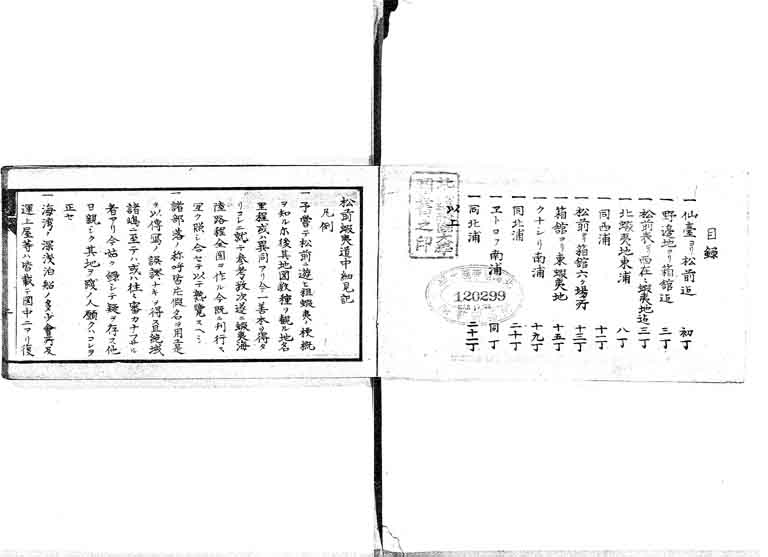 目録
一 仙臺ヨリ松前迠 初丁
一 野邊地ヨリ箱舘迠 二丁
一 松前表ヨリ西在々蝦夷地迠 三丁
一 北蝦夷地東浦 八丁
一 同西浦 十二丁
一 松前ヨリ箱舘六ケ場所 十三丁
一 箱舘ヨリ東蝦夷地 十五丁
一 クナシリ南浦 十九丁
一 同北浦 二十丁
一 ヱトロフ南浦 同丁
一 同北浦 二十二丁
以上
120299
松前蝦夷道中細見記
凡例
一 予嘗テ松前ニ遊ヒ粗蝦夷ノ梗概
ヲ知ル尓後其地図数種ヲ観ル地名
里程或ハ異同アリ今一善本ヲ得タ
リコレニ就テ参考数次遂ニ蝦夷海
陸路程全図ヲ作ル今既刊行ス
宜ク照シ合セテ以テ熟覧スヘシ
一 諸部落ノ称呼皆片假名ヲ用ユ是
ヲ以傳冩ノ誤謬ナキヲ得ス且絶域
諸嶋ニ至テハ或ハ往々審カナラサル
者アリ今姑ク録シテ疑ヲ存ス他
日親シク其地ヲ踐ノ人願クハコレヲ
正セ
一 海湾ノ深浅泊舩ノ多少會所及
運上屋等ハ皆載テ圖中ニアリ復